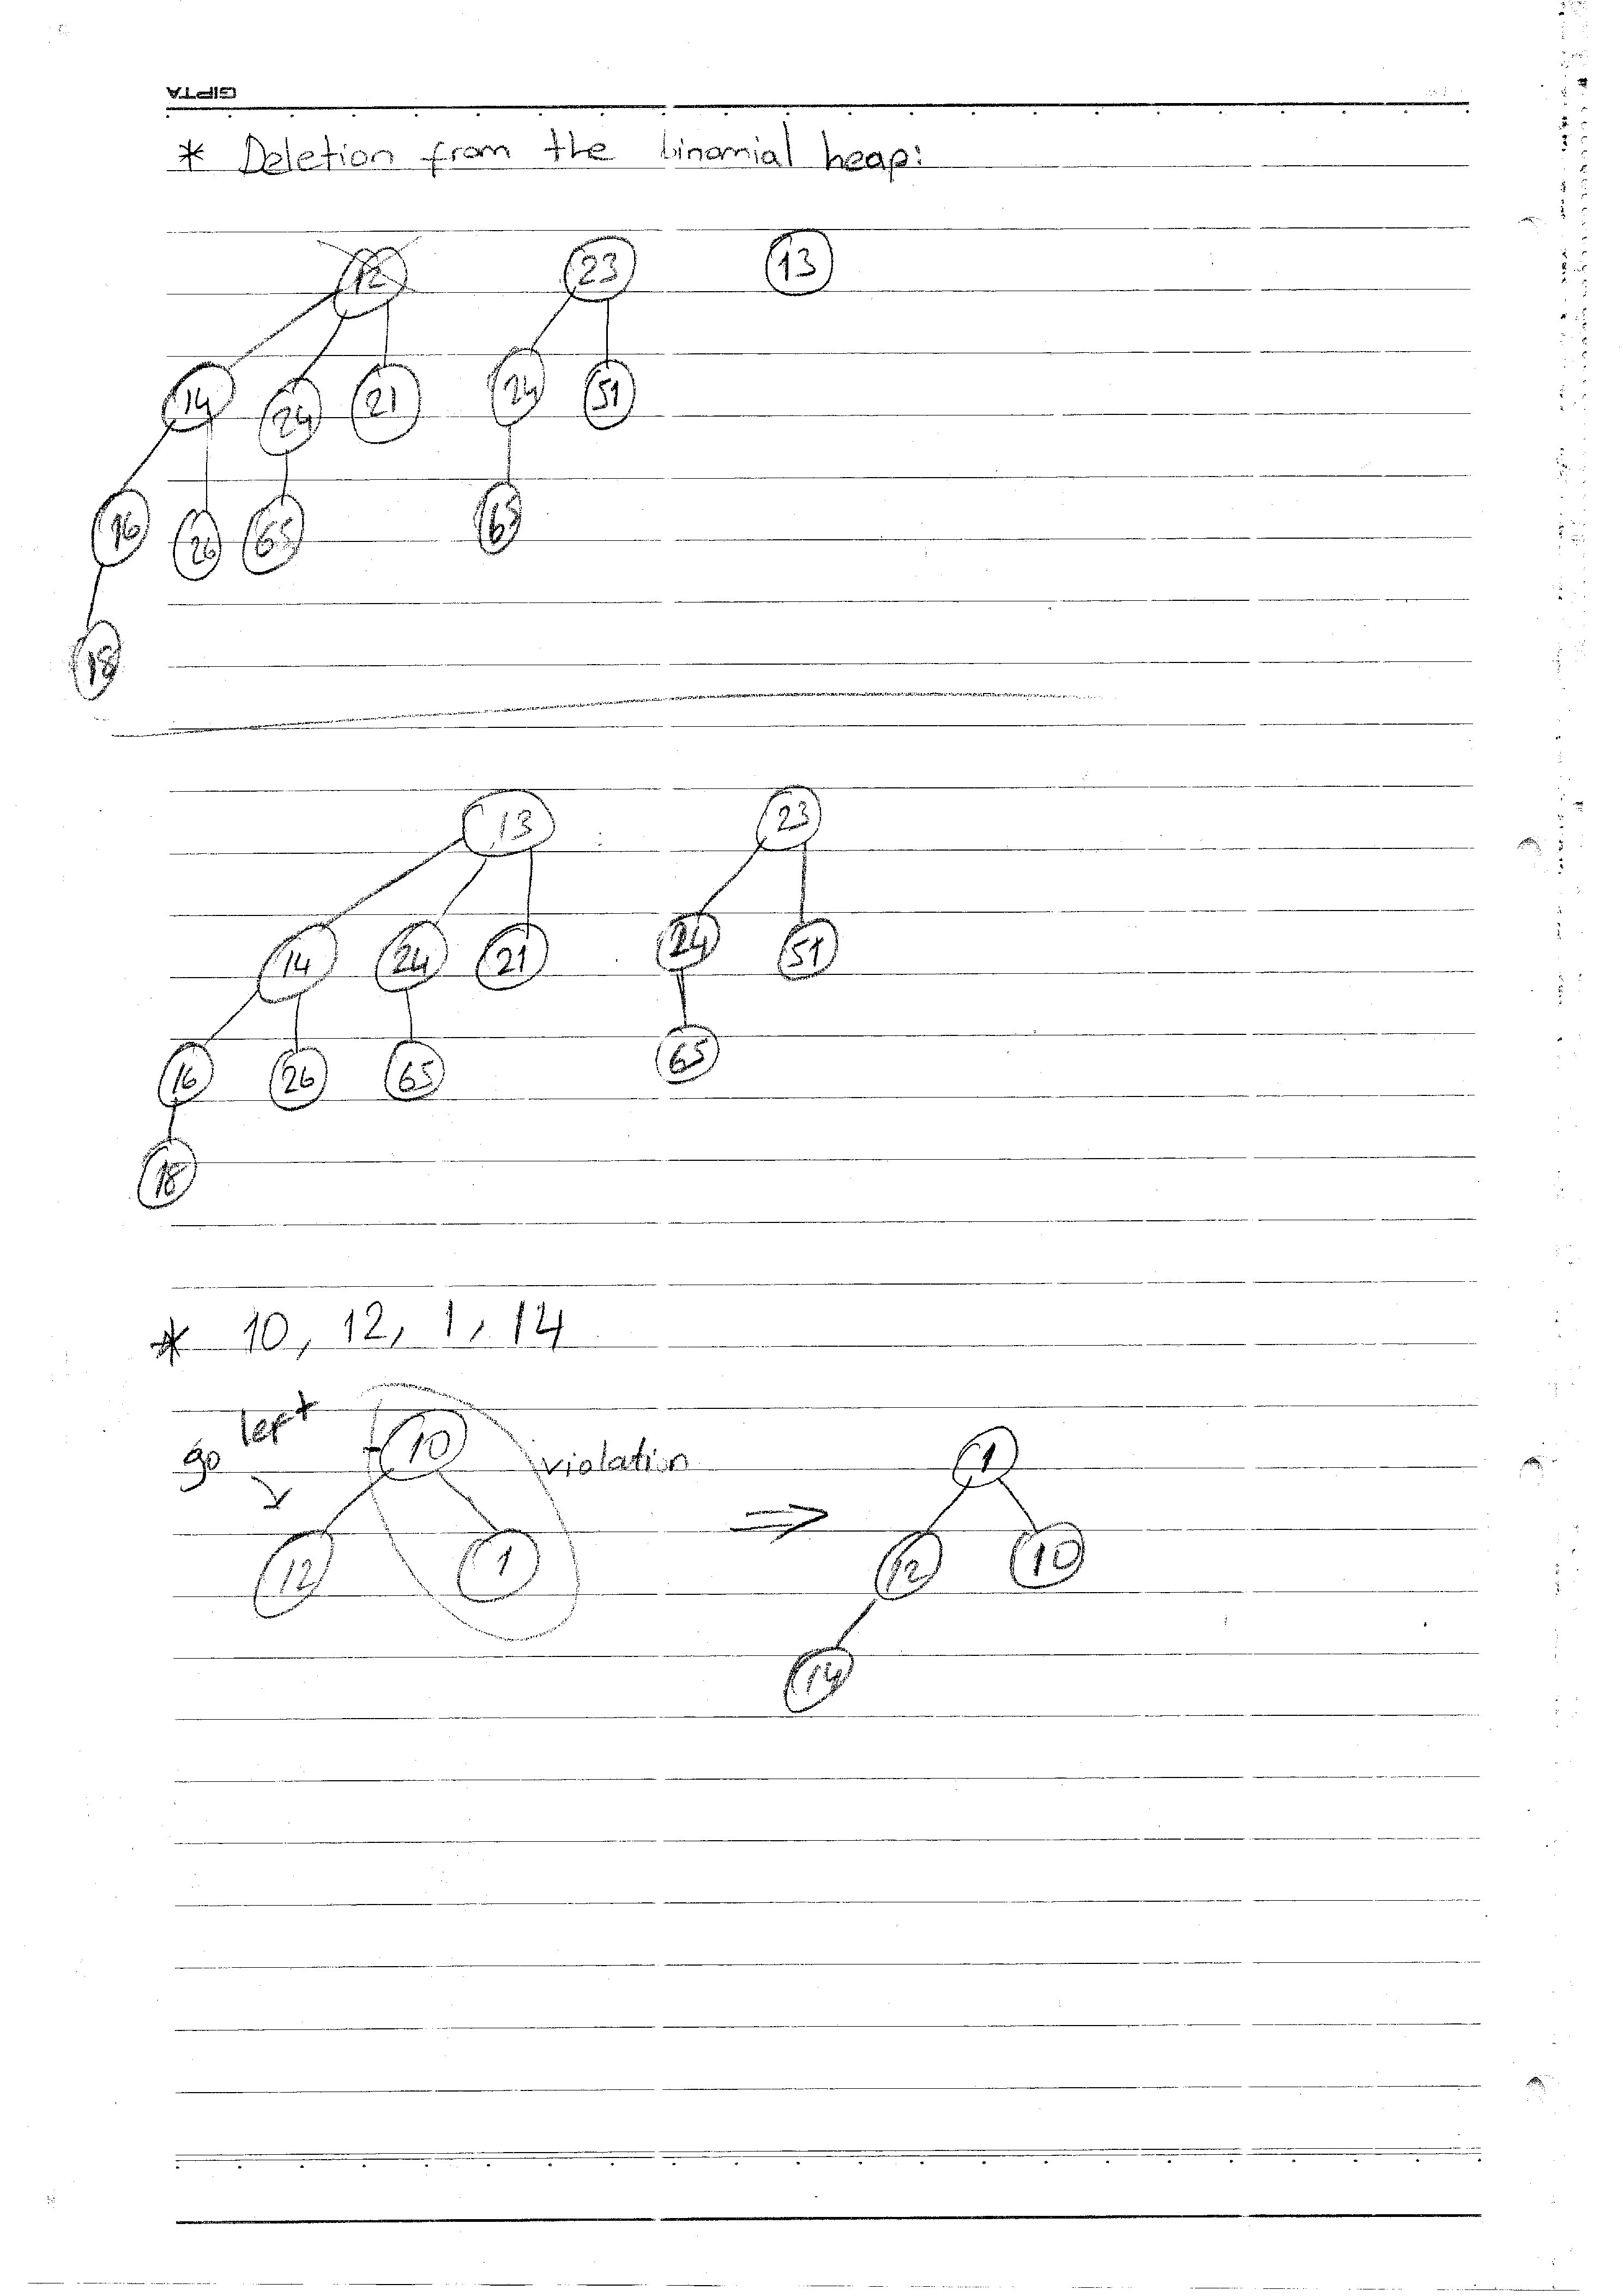 GIPTA
* Deletion from the binomial heap:
12 23 13
14 24 21 24 51
16 26 65 65
18
13 23
14 24 21 24 51
16 26 65 65
18
* 10, 12, 1, 14
go left 10 violation ⇒ 1
12 1 12 10
14